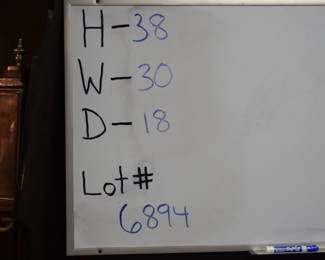 H-38
W-30
D-18
Lot#
6894